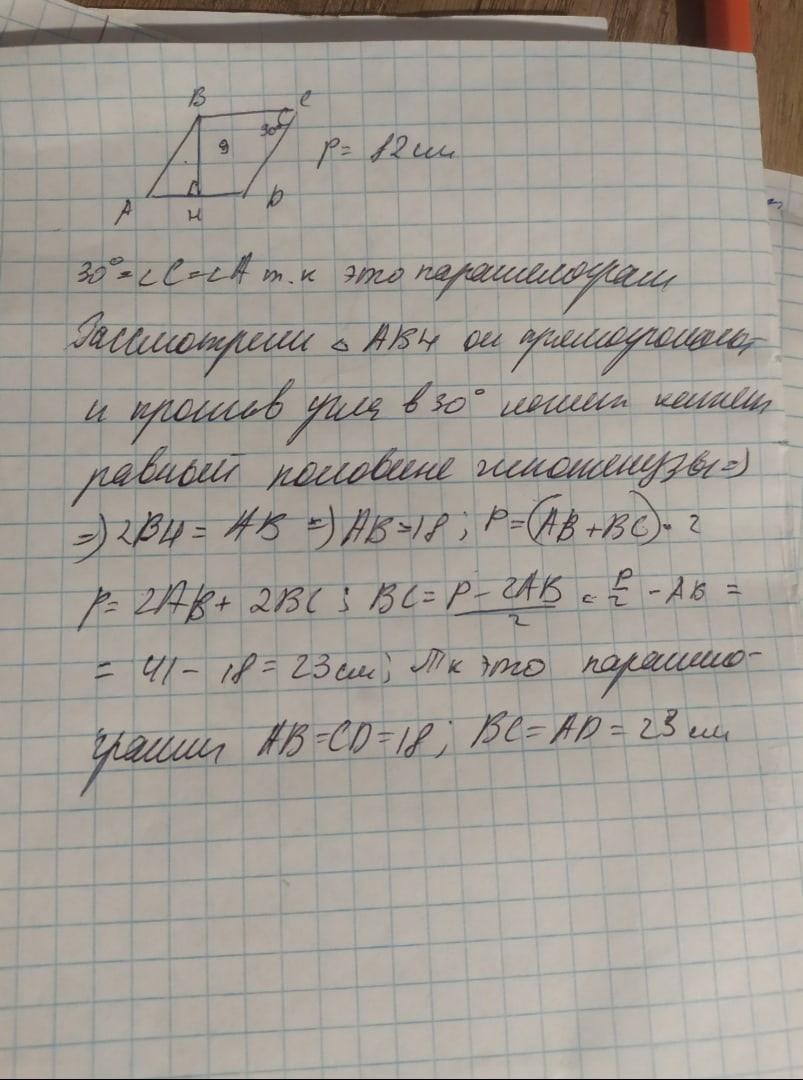 B C
30°
9
P = 82 см
A H D
30° = ∠C = ∠A т.к это параллелограм
Рассмотрим △ ABH он прямоугольный
и против угла в 30° лежит катет
равный половине гипотенузы =>
=> 2BH = AB => AB = 18 ; P = (AB + BC) · 2
P = 2AB + 2BC ; BC = (P - 2AB)/2 = P/2 - AB =
= 41 - 18 = 23 см ; Т к это паралело-
грамм AB = CD = 18 ; BC = AD = 23 см